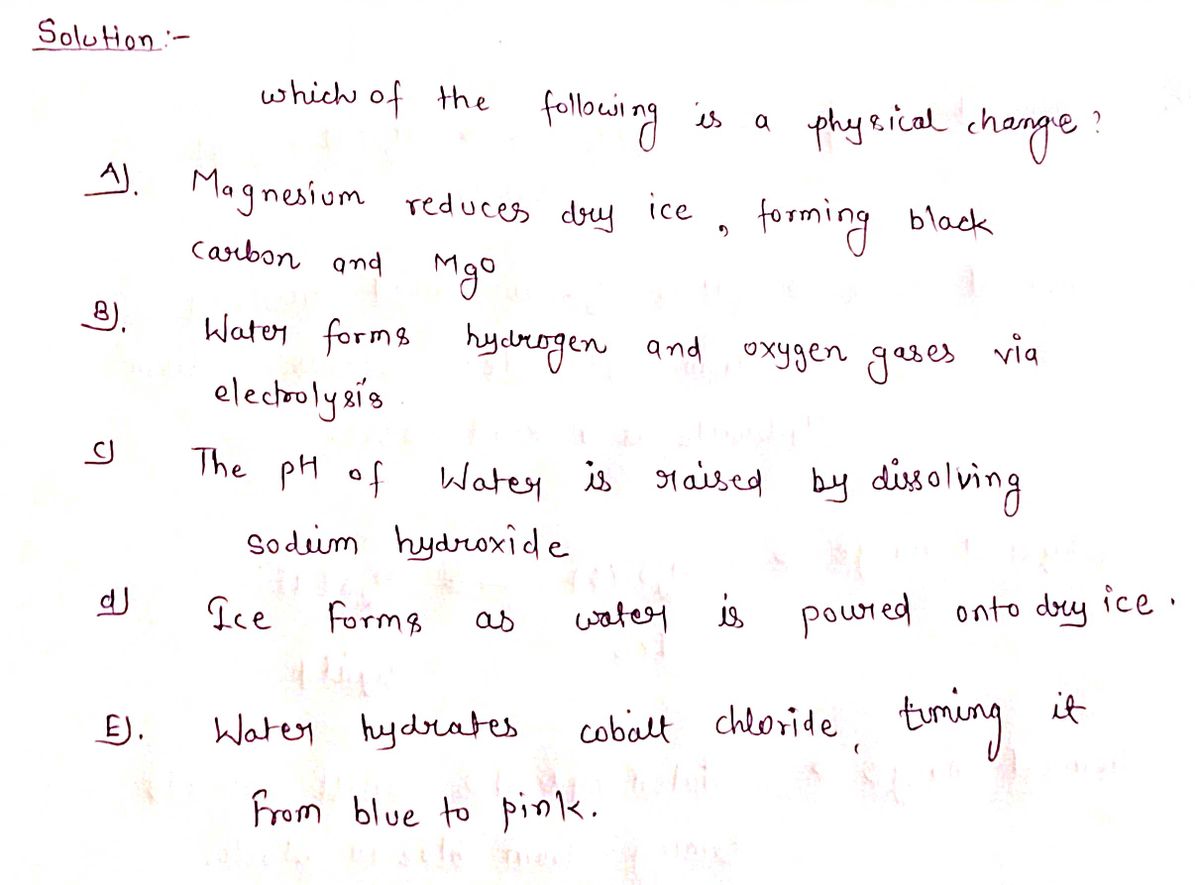 Solution :-
which of the following is a physical change ?
A). Magnesium reduces dry ice, forming black
carbon and MgO
B). Water forms hydrogen and oxygen gases via
electrolysis
C) The pH of Water is raised by dissolving
sodium hydroxide
d) Ice forms as water is poured onto dry ice.
E). Water hydrates cobalt chloride, turning it
from blue to pink.